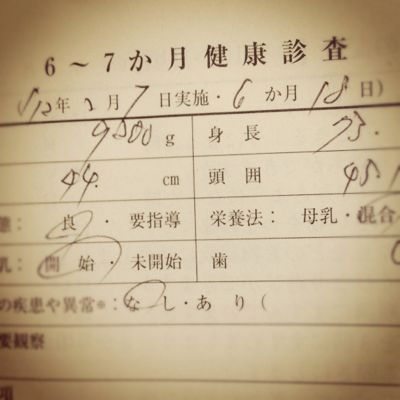 6～7か月健康診査
年2月7日実施・6か月18日)
g 身長 73.
44. cm 頭囲 45.
態: 良・要指導 栄養法: 母乳・混合
乳: 開始・未開始 歯
の疾患や異常※: なし・あり(
要観察
項